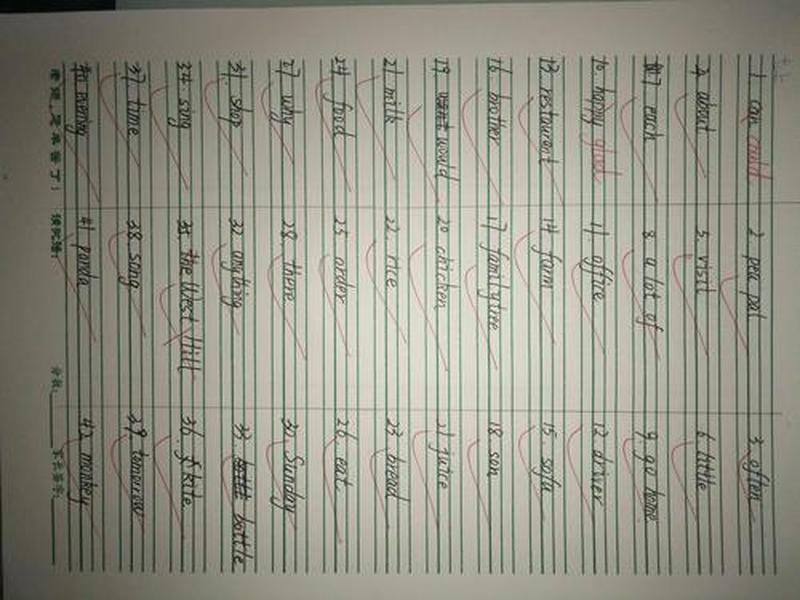 1. can could 2. pen pal 3. often
4. about 5. visit 6. little
7. each 8. a lot of 9. go home
10. happy glad 11. office 12. driver
13. resturant 14. farm 15. sofa
16. brother 17. family tree 18. son
19. would 20. chicken 21. juice
21. milk 22. rice 23. bread
24. food 25. order 26. eat
27. why 28. there 30. Sunday
31. shop 32. anything 33. bottle
34. sing 35. the West Hill 36. kite
37. time 38. song 39. tomorrow
40. evening 41. panda 42. monkey